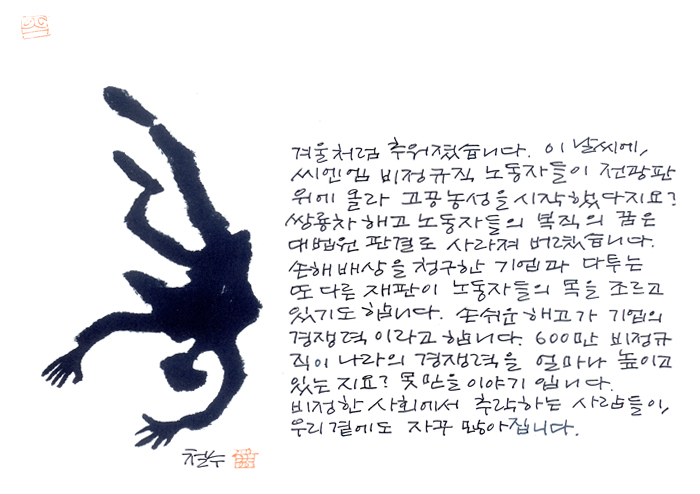 겨울처럼 추워졌습니다. 이 날씨에,
씨엔엠 비정규직 노동자들이 전광판
위에 올라 고공농성을 시작했다지요?
쌍룡차 해고 노동자들의 복직의 꿈은
대법원 판결로 사라져 버렸습니다.
손해배상을 청구한 기업과 다투는
또 다른 재판이 노동자들의 목을 조르고
있기도 합니다. 손쉬운 해고가 기업의
경쟁력이라고 합니다. 600만 비정규
직이 나라의 경쟁력을 얼마나 높이고
있는지요? 못믿을 이야기 입니다.
비정한 사회에서 추락하는 사람들이,
우리 곁에도 자꾸 많아집니다.
철수